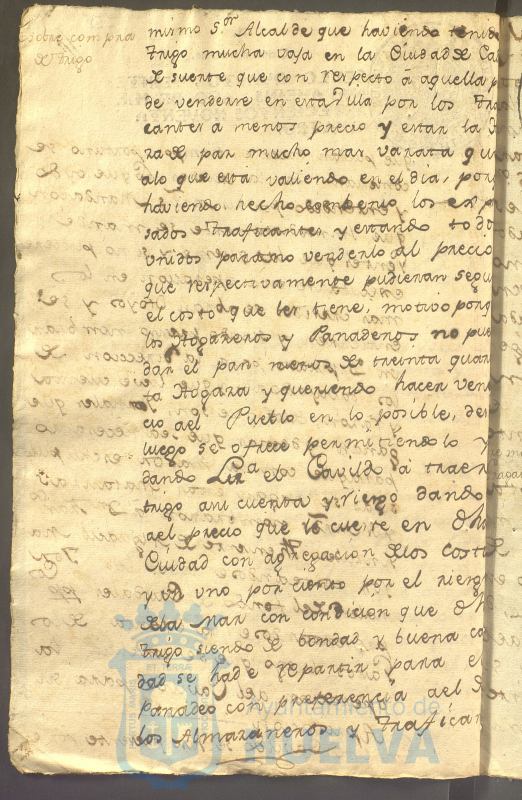 sobre compra
de trigo
mismo S.or Alcalde que haviendo tenido
trigo mucha vaja en la Ciudad de Ca
de suerte que con respecto á aquella p
de venderse en esta Villa por los tra
cantes a menos precio y estar la
de pan mucho mas varata que
alo que esta valiendo en el dia, por
haviendo hecho combenio los expre
sados traficantes y estando todos
unidos para no venderlo al precio
que respectivamente pudieran segu
el costo que les tiene, motivo porq
los Hogazeros y Panaderos no pue
dar el pan menos de treinta quar
ta Hogaza y queriendo hacer vene
cio ael Pueblo en lo posible, des
luego se ofrece permitiendolo y
dando Liz.a el Cavildo á traer
trigo asu cuenta y riesgo dando
ael precio que le cueste en dha
Ciudad con agregacion de los costos
y un uno por ciento por el riesgo
de la mar con condicion que dho
trigo siendo de bondad y buena ca
dad se ha de repartir para el
Panadeo con preferencia ael de
los Almazaneros y trafican
Ayuntamiento de
HUELVA